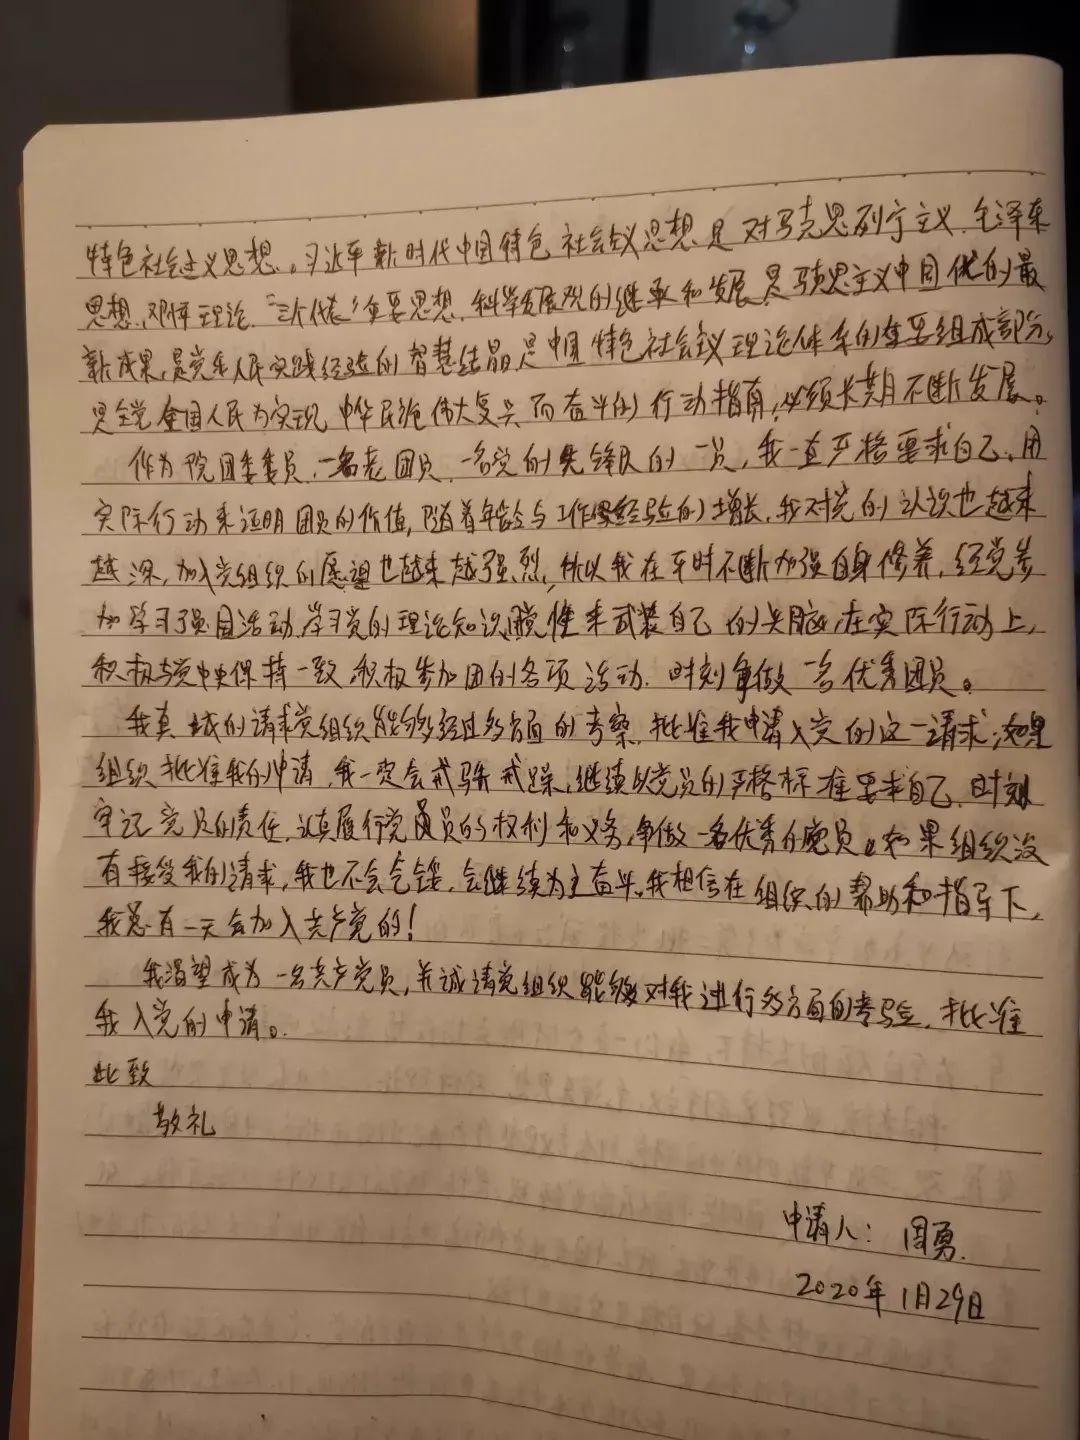 特色社会主义思想。习近平新时代中国特色社会主义思想是对马克思列宁主义、毛泽东
思想、邓小平理论、“三个代表”重要思想、科学发展观的继承和发展,是马克思主义中国化的最
新成果,是党和人民实践经验的智慧结晶,是中国特色社会主义理论体系的重要组成部分,
是全党全国人民为实现中华民族伟大复兴而奋斗的行动指南,必须长期不断发展。
作为院团委委员,一名老团员,一名党的先锋队的一员,我一直严格要求自己,用
实际行动来证明团员的价值,随着年龄与工作经验的增长,我对党的认识也越来
越深,加入党组织的愿望也越来越强烈,所以我在平时不断加强自身修养,经常参
加学习强国活动,学习党的理论知识,来武装自己的头脑,在实际行动上,
积极与党中央保持一致,积极参加团的各项活动,时刻争做一名优秀团员。
我真诚的请求党组织能够经过多方面的考察,批准我申请入党的这一请求;如果
组织批准我的申请,我一定会戒骄戒躁,继续以党员的严格标准要求自己,时刻
牢记党员的责任,认真履行党员的权利和义务,争做一名优秀的党员。如果组织没
有接受我的请求,我也不会气馁,会继续为之奋斗,我相信在组织的帮助和指导下,
我总有一天会加入共产党的!
我渴望成为一名共产党员,并诚请党组织能够对我进行多方面的考验,批准
我入党的申请。
此致
敬礼
申请人:周勇
2020年1月29日